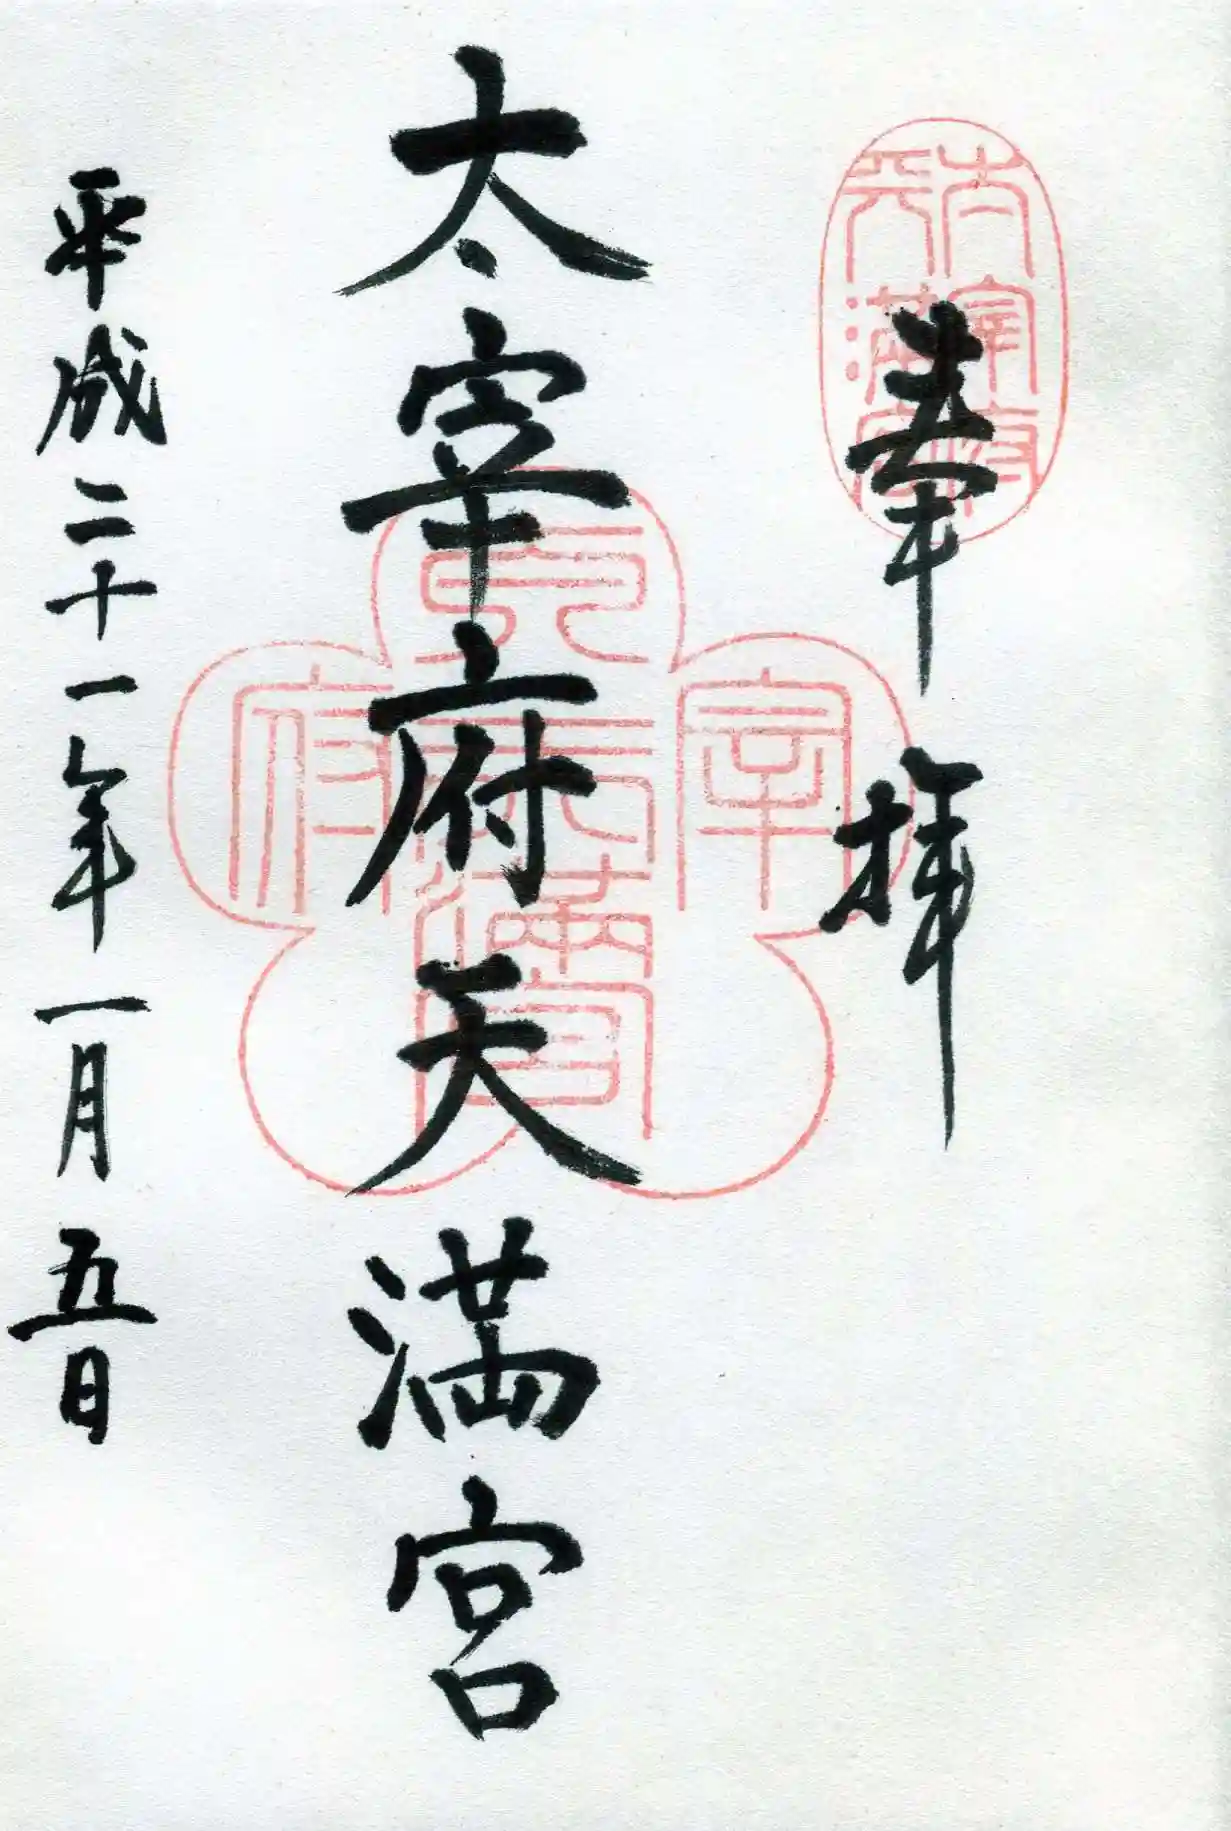 奉拝
太宰府天満宮
平成二十一年一月五日
太宰府
天満宮